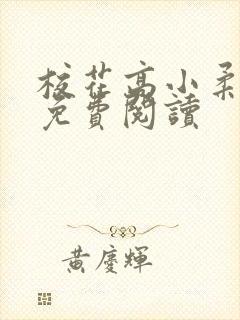 校花高小柔
免費閱讀
黃慶輝